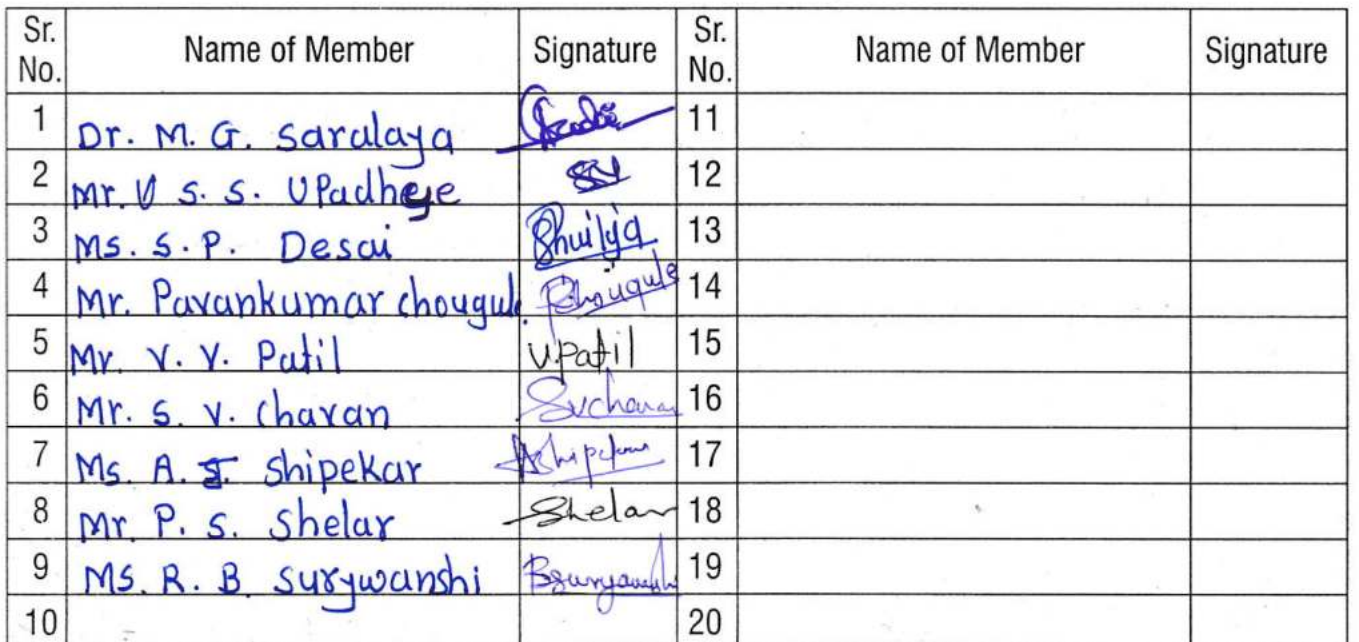 Sr. No. Name of Member Signature Sr. No. Name of Member Signature
1 Dr. M. G. Saralaya 11
2 Mr. S. S. Upadheye 12
3 Ms. S. P. Desai 13
4 Mr. Pavankumar chougule Chougule 14
5 Mr. V. V. Patil V.Patil 15
6 Mr. S. V. Chavan Svchavan 16
7 Ms. A. J. Shipekar AShipekar 17
8 Mr. P. S. Shelar Shelar 18
9 Ms. R. B. Surywanshi 19
10 20